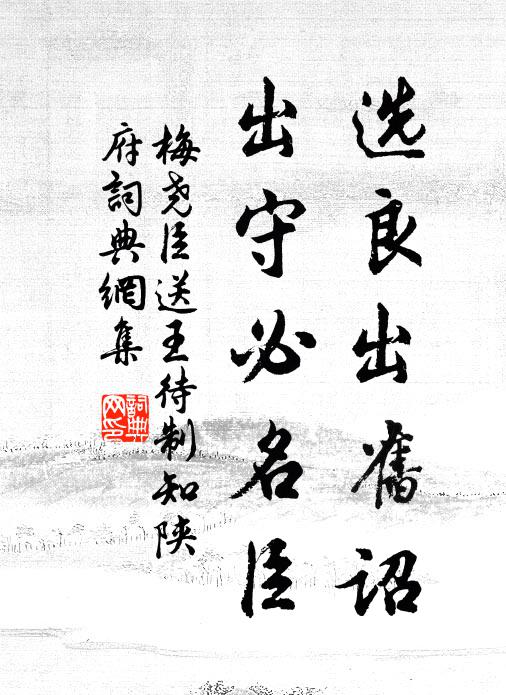 选良出旧诏
出守必名臣
梅尧臣送王待制知陕
府词典网集
词典网印